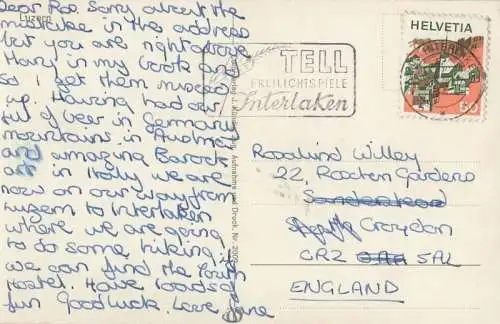 Dear Ros. Sorry about the
mistake in the address
but you are right above
Mary in my book and
so I get them mixed
up. Having had our
full of beer in Germany
mountains in Austria
and amazing Barock
art in Italy we are
now on our way from
Luzern to Interlaken
where we are going
to do some hiking if
we can find the Youth
Hostel. Have loads of
fun Good luck. Love Jane
Luzern
TELL
FREILICHTSPIELE
Interlaken
HELVETIA
Aufnahme und Druck
Rosalind Willey
22, Roochen Gardens
Sanderstead
Croydon
CR2 5AL
ENGLAND